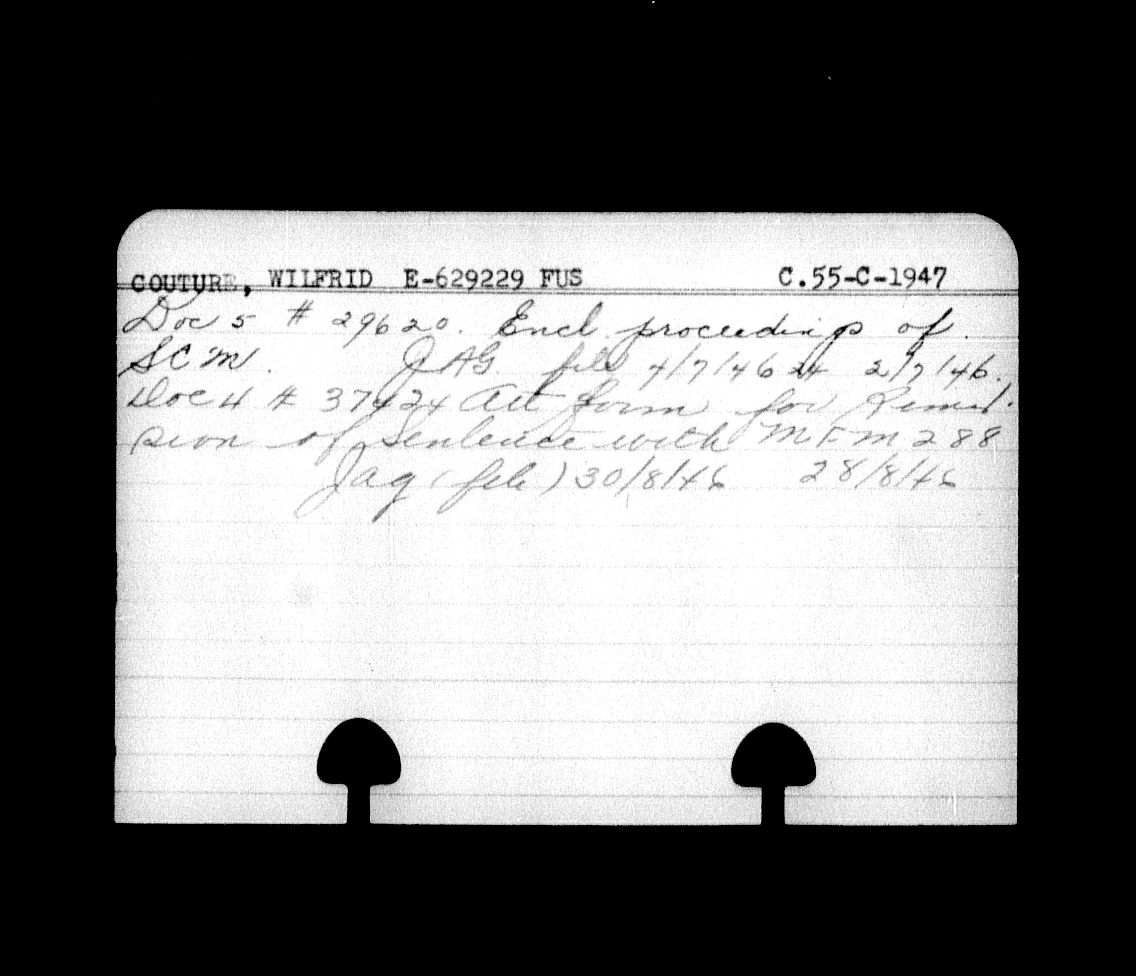 COUTURE, WILFRID E-629229 FUS C.55-C-1947
Doc 5 # 29620. Encl proceedings of
SCM. JAG file 4/7/46 2/7/46.
Doc 4 # 37424 form for Remis-
sion of Sentence with MFM 288
Jag (file) 30/8/46 28/8/46